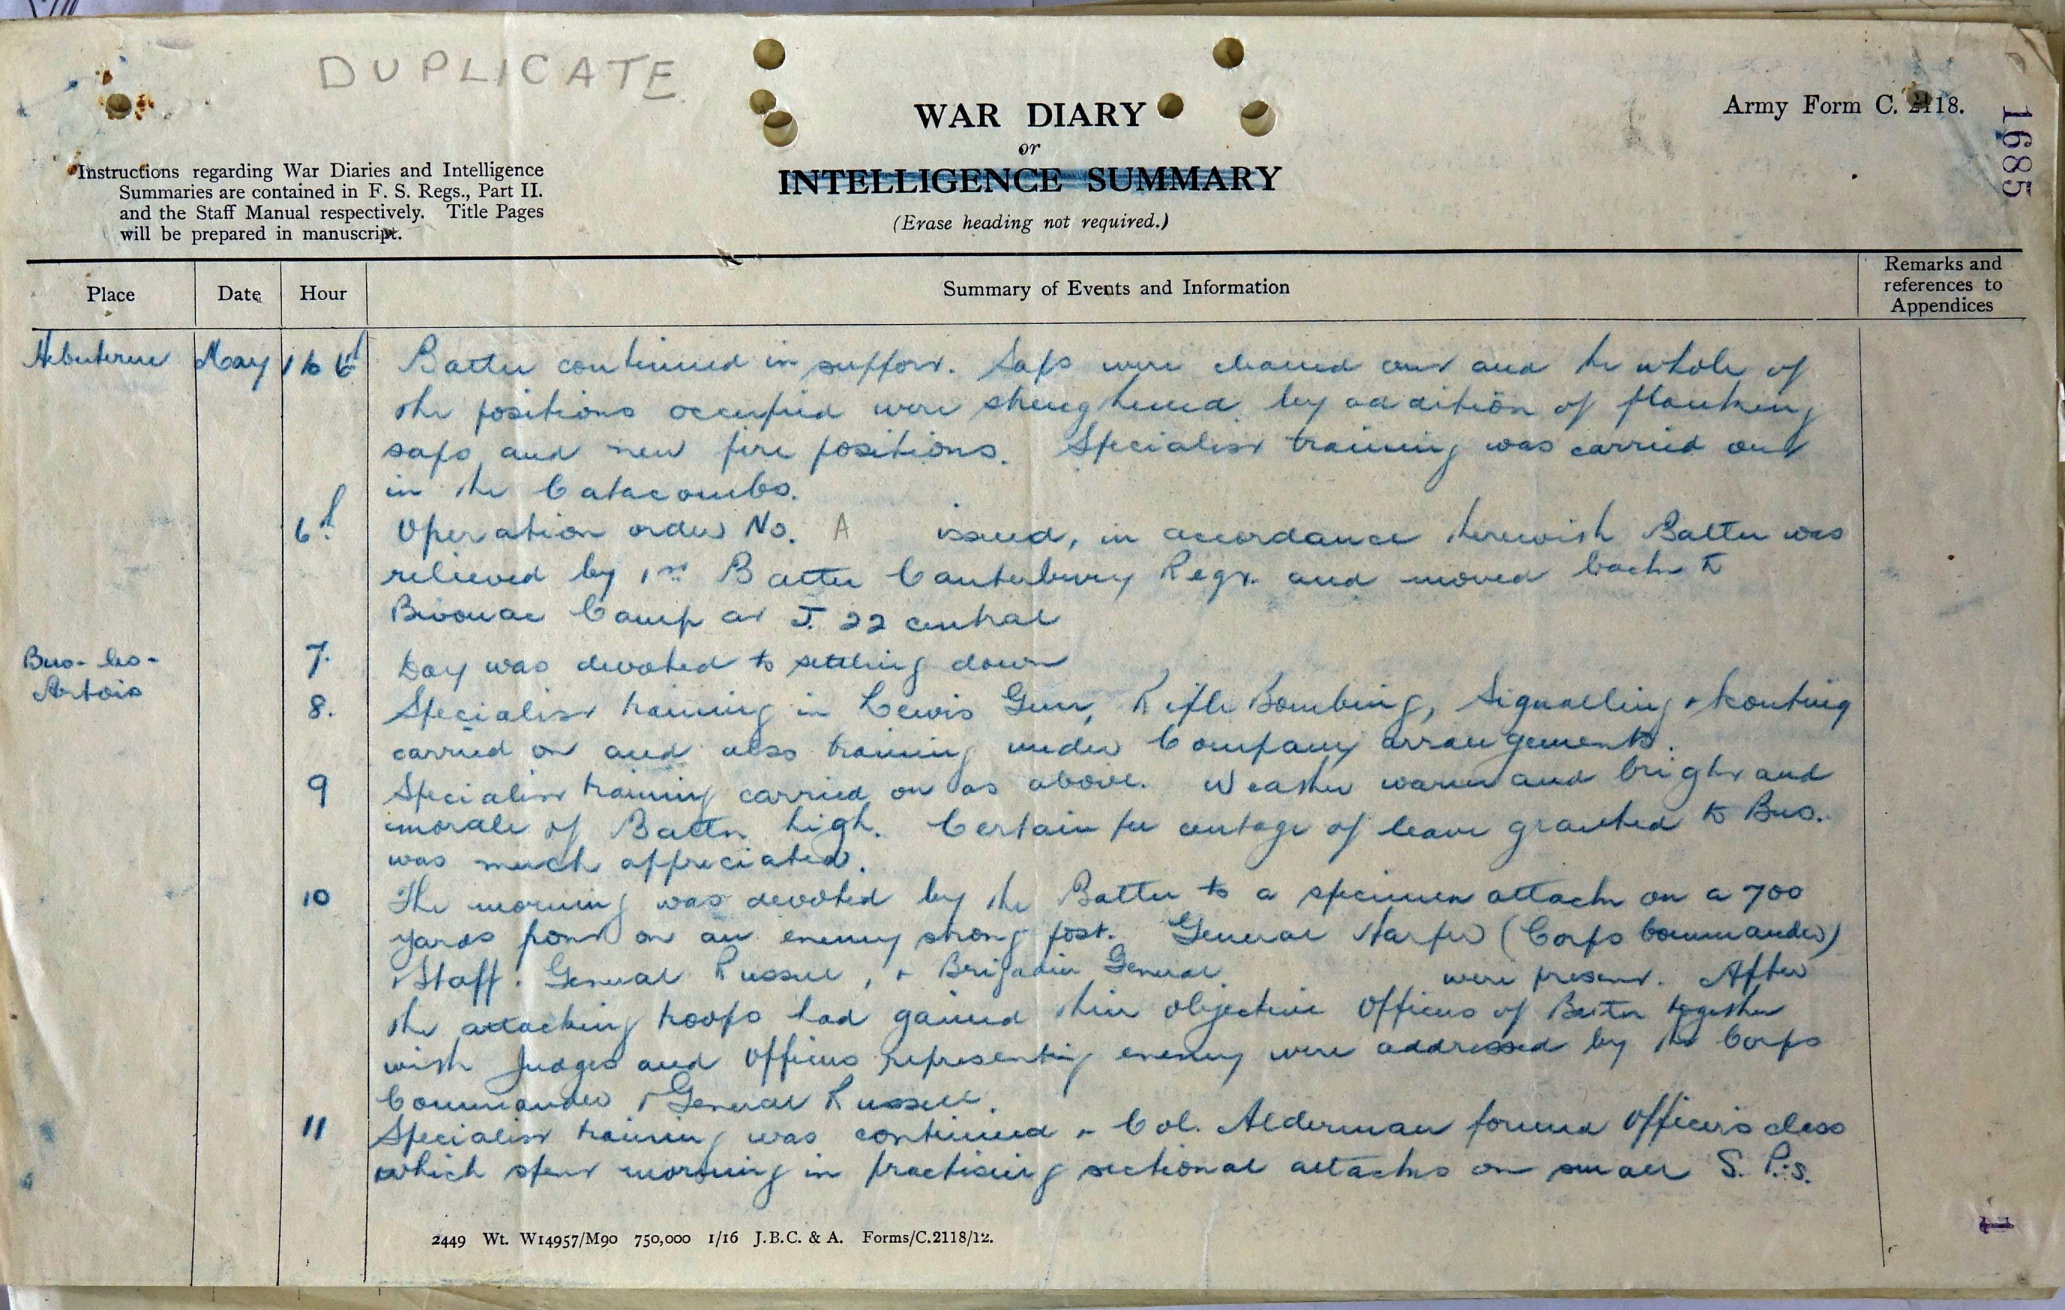 DUPLICATE
WAR DIARY
or
INTELLIGENCE SUMMARY
(Erase heading not required.)
Army Form C. 2118.
1685
Instructions regarding War Diaries and Intelligence
Summaries are contained in F. S. Regs., Part II.
and the Staff Manual respectively. Title Pages
will be prepared in manuscript.
Place
Date
Hour
Summary of Events and Information
Remarks and
references to
Appendices
Hebuterne May 1 to 6th Battn continued in support. Saps were cleaned out and the whole of
the positions occupied were strengthened by addition of flanking
saps and new fire positions. Specialist training was carried out
in the Catacombs.
6th Operation order No. A issued, in accordance herewith Battn was
relieved by 1st Battn Canterbury Regt. and moved back to
Bivouac Camp at J. 22 central
Bus-les-
Artois
7. Day was devoted to settling down
8. Specialist training in Lewis Gun, Rifle Bombing, Signalling & Scouting
carried on and also training under Company arrangements.
9 Specialist training carried on as above. Weather warm and bright and
morale of Battn high. Certain per centage of leave granted to Bus.
was much appreciated.
10 The morning was devoted by the Battn to a specimen attack on a 700
yards front on an enemy strong post. General Harper (Corps Commander)
& Staff. General Russell, & Brigadier General were present. After
the attacking troops had gained their objective Officers of Battn together
with Judges and Officers representing enemy were addressed by the Corps
Commander & General Russell.
11 Specialist training was continued & Col. Alderman formed Officers class
which spent morning in practising sectional attacks on small S. P.s.
2449 Wt. W14957/M90 750,000 1/16 J.B.C. & A. Forms/C.2118/12.
1